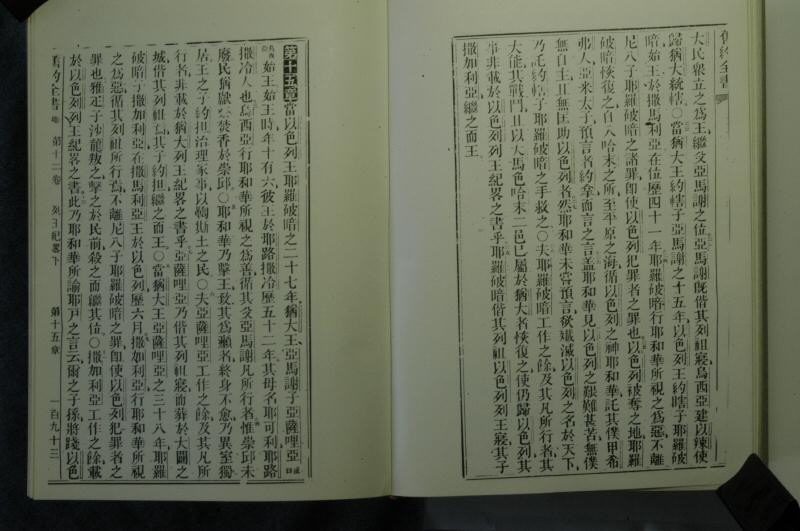 舊約全書
大民衆立之爲王繼父亞馬謝之位亞馬謝旣偕其列祖寢烏西亞建以辣使
歸猶大統轄〇當猶大王約轄子亞馬謝之十五年以色列王約轄子耶羅破
暗始王於撒馬利亞在位歷四十一年耶羅破暗行耶和華所視之爲惡不離
尼八子耶羅破暗之諸罪卽使以色列犯罪者之罪也以色列被奪之地耶羅
破暗恢復之自八哈末之所至平原之海循以色列之神耶和華託其僕甲希
弗人亞米太子預言者約拿而言之言蓋耶和華見以色列之艱難甚苦無僕
無自主且無匡助以色列者然耶和華未嘗預言欲殲滅以色列之名於天下
乃託約轄子耶羅破暗之手救之〇夫耶羅破暗工作之餘及其凡所行者其
大能其戰鬥且以大馬色哈末二邑已屬於猶大者恢復之使仍歸以色列其
事非載於以色列列王紀畧之書乎耶羅破暗偕其列祖以色列列王寢其子
撒加利亞繼之而王
第十五章當以色列王耶羅破暗之二十七年猶大王亞馬謝子亞薩哩亞
始王始王時年十有六彼王於耶路撒冷歷五十二年其母名耶可利耶路
撒冷人也烏西亞行耶和華所視之爲善循其父亞馬謝凡所行者惟崇邱未
廢民猶獻祭焚香於崇邱〇耶和華乃擊王致其爲癩者終身不愈乃異室獨
居王之子約担治理家事以鞫斯土之民〇夫亞薩哩亞工作之餘及其凡所
行者非載於猶大列王紀畧之書乎亞薩哩亞乃偕其列祖寢而葬於大闢之
城偕其列祖焉其子約担繼之而王〇當猶大王亞薩哩亞之三十八年耶羅
破暗子撒加利亞在撒馬利亞王於以色列歷六月撒加利亞行耶和華所視
之爲惡循其列祖所行焉不離尼八子耶羅破暗之罪卽使以色列犯罪者之
罪也雅疋子沙龍叛之擊之於民前殺之而繼其位〇撒加利亞工作之餘載
於以色列列王紀畧之書此乃耶和華所諭耶戸之言云爾之子孫將踐以色
舊約全書 第十二卷 列王紀畧下 第十五章 一百九十三